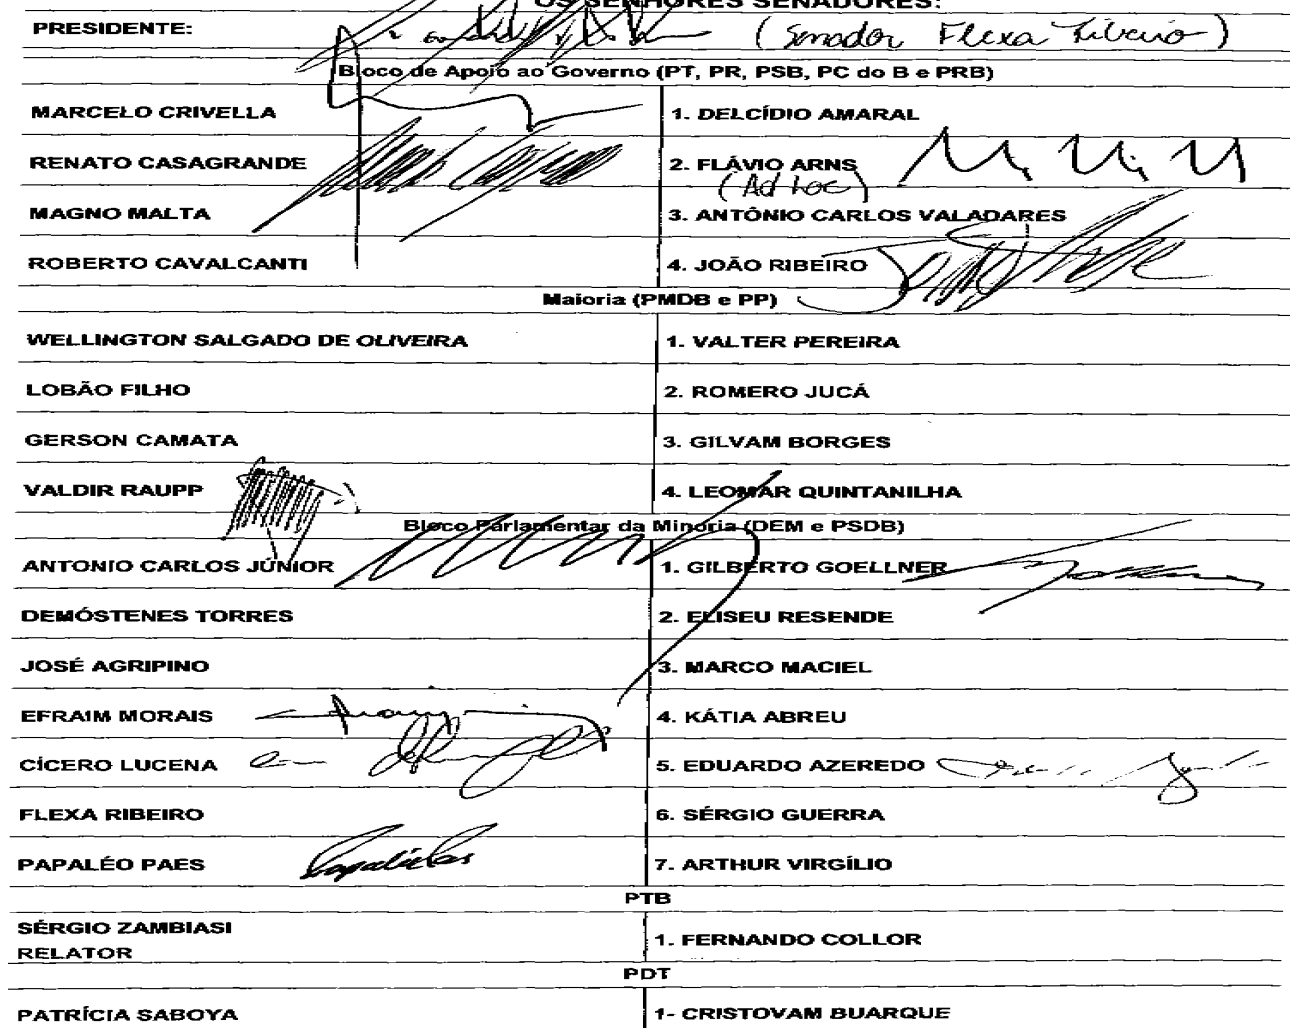 OS SENHORES SENADORES:
PRESIDENTE: (Senador Flexa Ribeiro)
Bloco de Apoio ao Governo (PT, PR, PSB, PC do B e PRB)
MARCELO CRIVELLA 1. DELCÍDIO AMARAL
RENATO CASAGRANDE 2. FLÁVIO ARNS
(Ad hoc)
MAGNO MALTA 3. ANTÔNIO CARLOS VALADARES
ROBERTO CAVALCANTI 4. JOÃO RIBEIRO
Maioria (PMDB e PP)
WELLINGTON SALGADO DE OLIVEIRA 1. VALTER PEREIRA
LOBÃO FILHO 2. ROMERO JUCÁ
GERSON CAMATA 3. GILVAM BORGES
VALDIR RAUPP 4. LEOMAR QUINTANILHA
Bloco Parlamentar da Minoria (DEM e PSDB)
ANTONIO CARLOS JÚNIOR 1. GILBERTO GOELLNER
DEMÓSTENES TORRES 2. ELISEU RESENDE
JOSÉ AGRIPINO 3. MARCO MACIEL
EFRAIM MORAIS 4. KÁTIA ABREU
CÍCERO LUCENA 5. EDUARDO AZEREDO
FLEXA RIBEIRO 6. SÉRGIO GUERRA
PAPALÉO PAES 7. ARTHUR VIRGÍLIO
PTB
SÉRGIO ZAMBIASI
RELATOR 1. FERNANDO COLLOR
PDT
PATRÍCIA SABOYA 1- CRISTOVAM BUARQUE